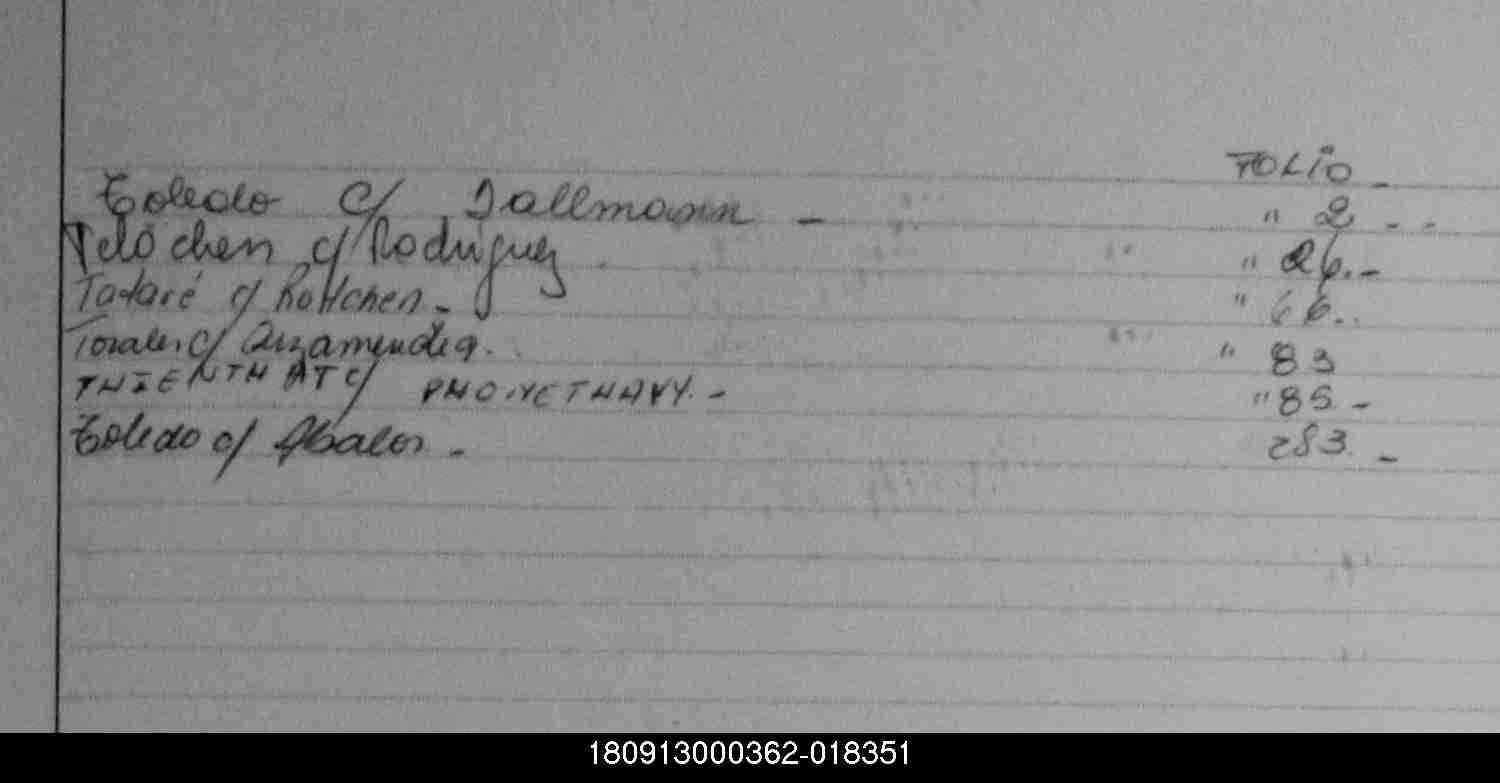 FOLIO -
Toledo c/ Dallmann - " 2 - -
Telöchen c/ Rodriguez " 26. -
Tataré c/ Röttchen - " 66..
Torales c/ Arzamendia. " 83
THIENTHAT c/ PHOMETHAVY. - " 85 -
Toledo c/ Abalos - 283. -
180913000362-018351